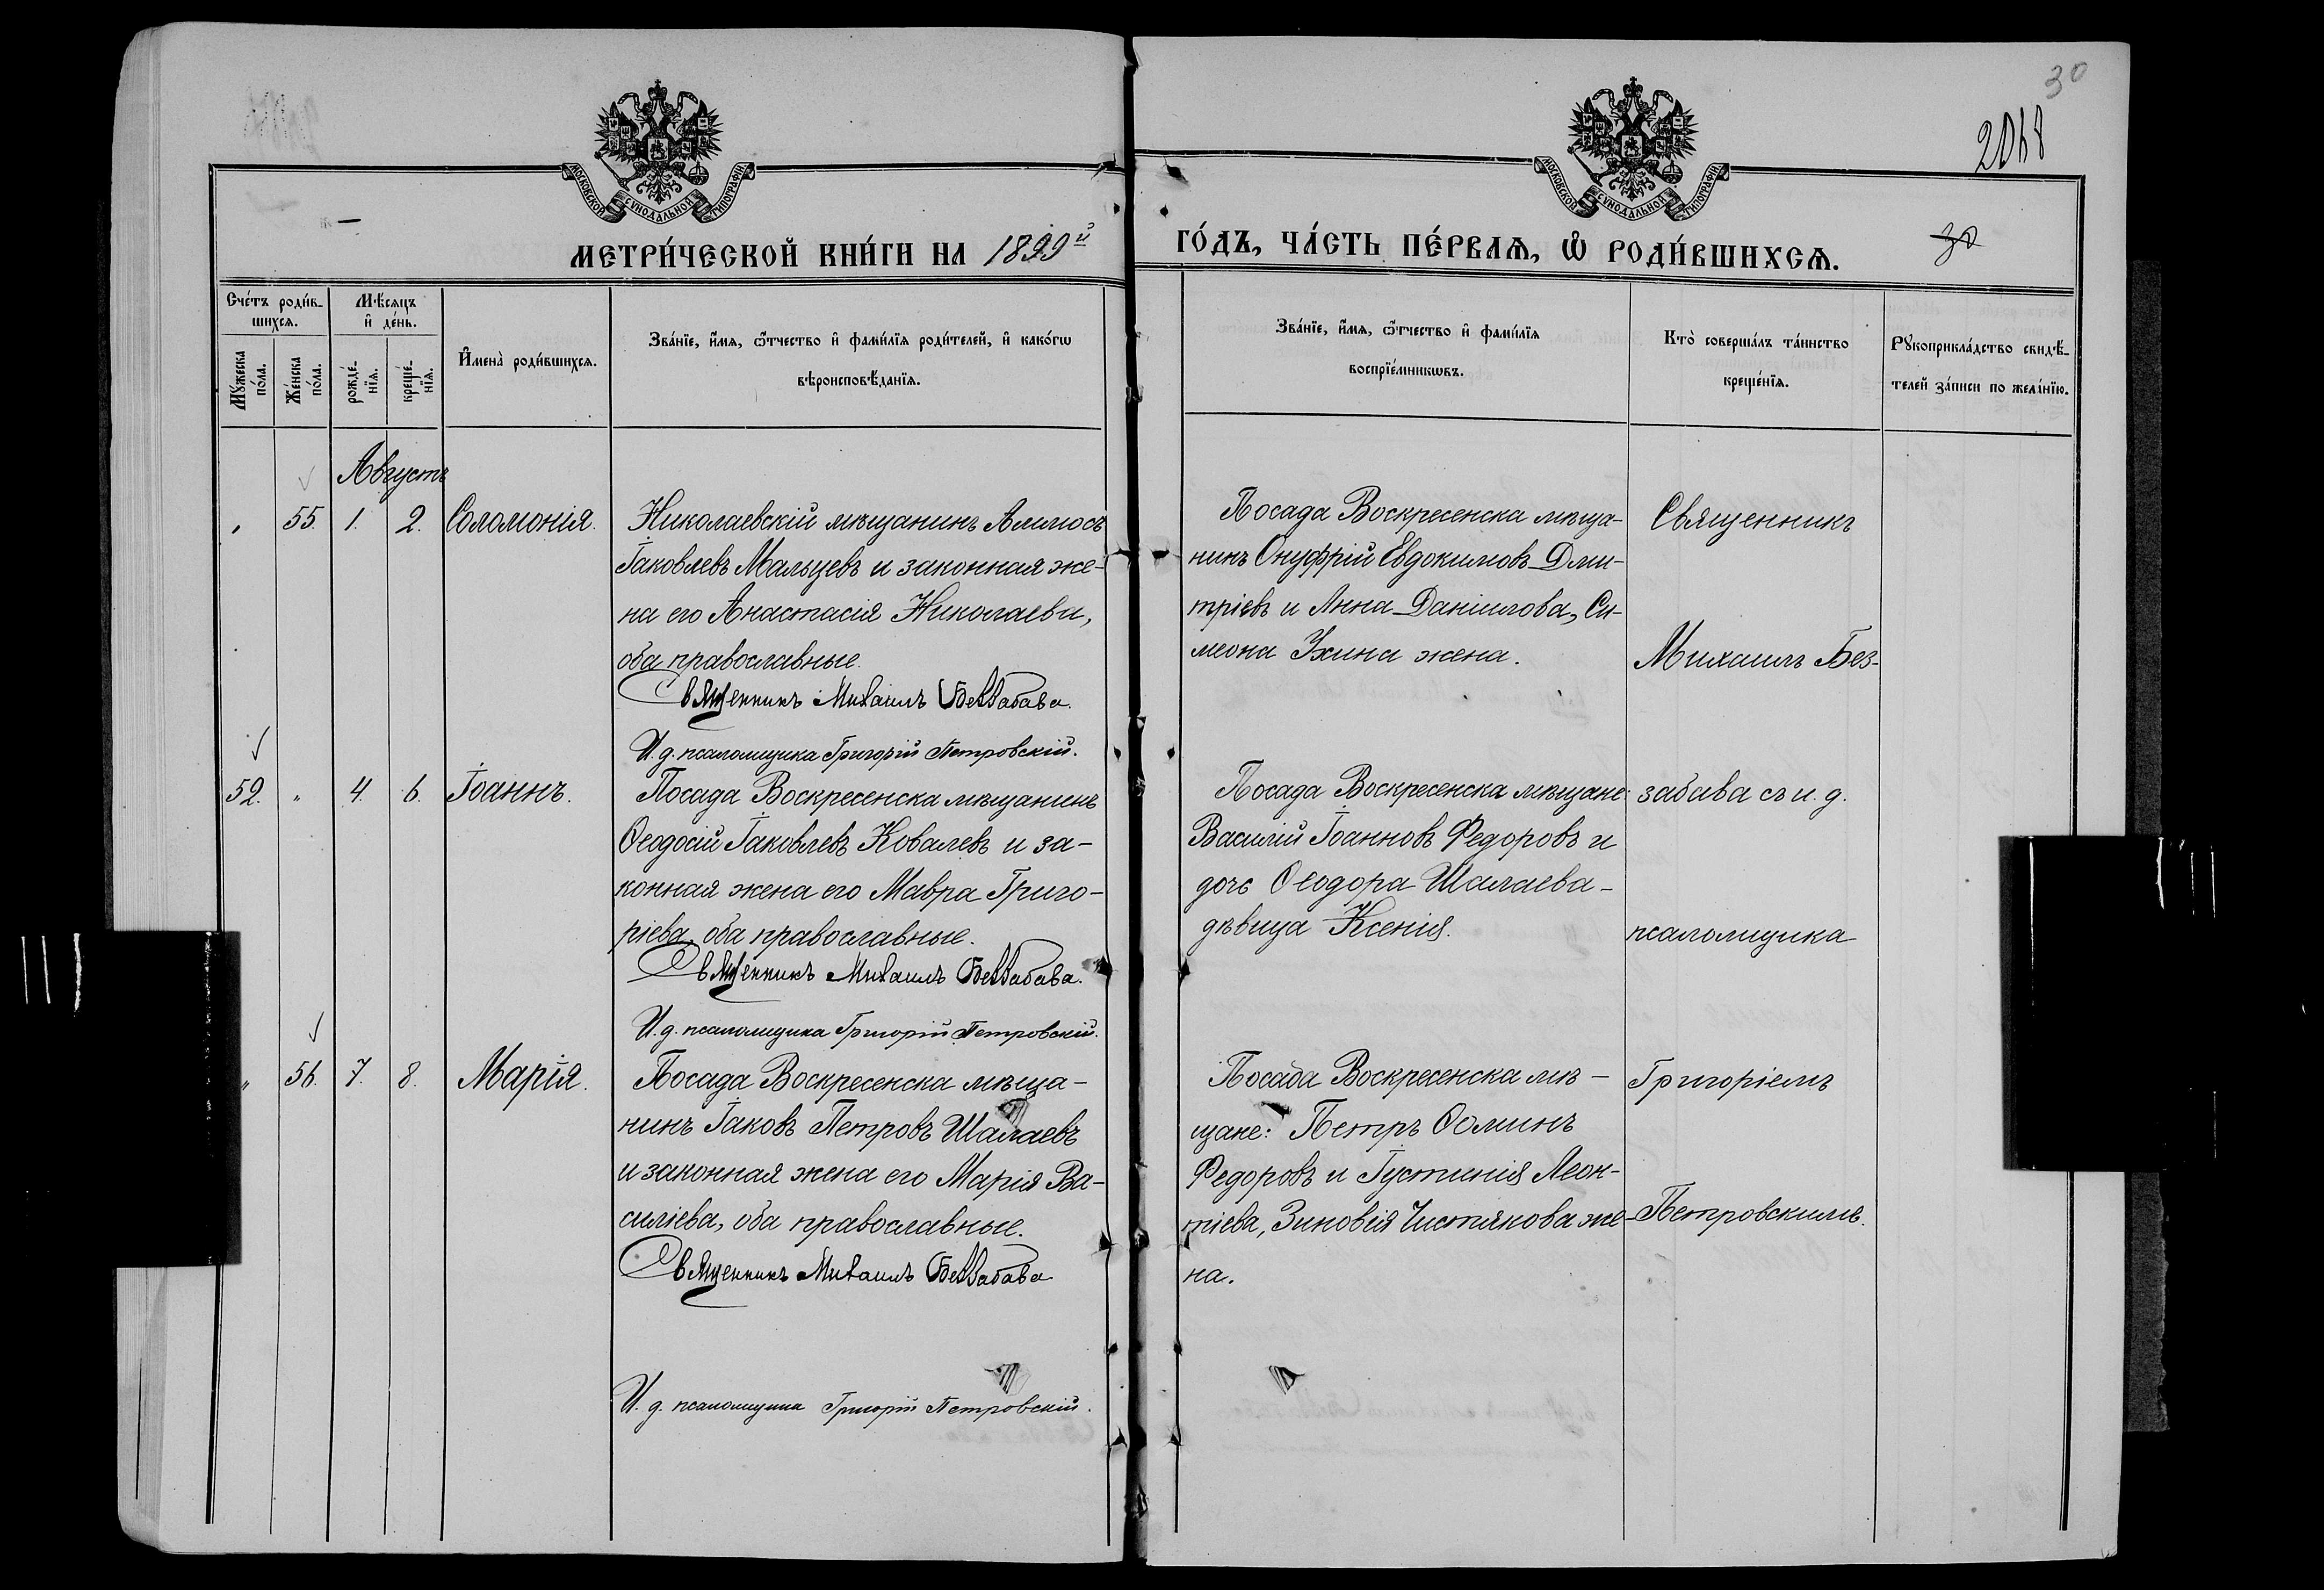 30
2068
МОСКОВСКОЙ СѴНОДАЛЬНОЙ ТИПОГРАФІИ.
МОСКОВСКОЙ СѴНОДАЛЬНОЙ ТИПОГРАФІИ.
МЕТРИ́ЧЕСКОЙ КНИ́ГИ НА 1899й
ГО́ДЪ, ЧА́СТЬ ПЕ́РВАѦ, Ѽ РОДИ́ВШИХСѦ.
30
Сче́тъ роди́в-
шихсѧ.
Мѣ́сѧцъ
и҆ де́нь.
Мꙋ́жеска
по́ла.
Же́нска
по́ла.
рожде́-
нїѧ.
креще́-
нїѧ.
И҆мена̀ роди́вшихсѧ.
Зва́нїе, и҆́мѧ, ѻ҆́тчество и҆ фами́лїѧ роди́телей, и҆ како́гѡ
вѣроисповѣ́данїѧ.
Зва́нїе, и҆́мѧ, ѻ҆́тчество и҆ фами́лїѧ
воспрїе́мникѡвъ.
Кто̀ соверша́лъ та́инство
креще́нїѧ.
Рꙋкоприкла́дство свидѣ́-
телей за́писи по жела́нїю.
Августъ
55. 1. 2. Соломонія.
Николаевскій мѣщанинъ Аммосъ
Іаковлевъ Мальцевъ и законная же-
на его Анастасія Николаева,
оба православные.
Священникъ Михаилъ Беззабава.
И. д. псаломщика Григорій Петровскій.
Посада Воскресенска мѣща-
нинъ Онуфрій Евдокимовъ Дми-
тріевъ и Анна Даніилова, Си-
меона Ухина жена.
Священникъ
Михаилъ Без-
52. " 4. 6. Іоаннъ.
Посада Воскресенска мѣщанинъ
Ѳеодосій Іаковлевъ Ковалевъ и за-
конная жена его Мавра Григо-
ріева, оба православные.
Священникъ Михаилъ Беззабава.
И. д. псаломщика Григорій Петровскій.
Посада Воскресенска мѣщане:
Василій Іоанновъ Федоровъ и
дочь Ѳеодора Шалаева-
дѣвица Ксенія.
забава съ и. д.
псаломщика
" 56. 7. 8. Марія.
Посада Воскресенска мѣща-
нинъ Іаковъ Петровъ Шалаевъ
и законная жена его Марія Ва-
силіева, оба православные.
Священникъ Михаилъ Беззабава
И. д. псаломщика Григорій Петровскій.
Посада Воскресенска мѣ-
щане: Петръ Ѳоминъ
Федоровъ и Іустинія Леон-
тіева, Зиновія Чистякова же-
на.
Григоріемъ
Петровскимъ.